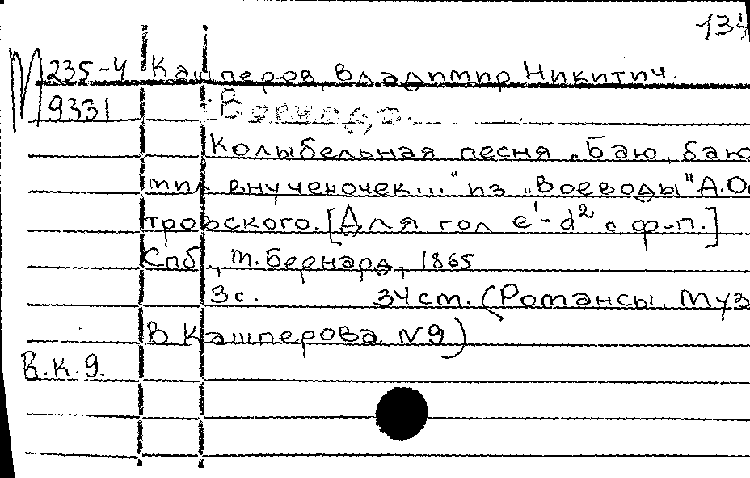 134
М 235-4 Кашперов, Владимир Никитич.
9331 Воевода.
Колыбельная песня „Баю, баю
мил внученочек..." из „Воеводы" А.Ос
тровского. [Для гол. e¹-d² с ф-п.]
Спб., М. Бернард, 1865
3 с. 34 см. (Романсы муз
В Кашперова №9)
В.К.9.